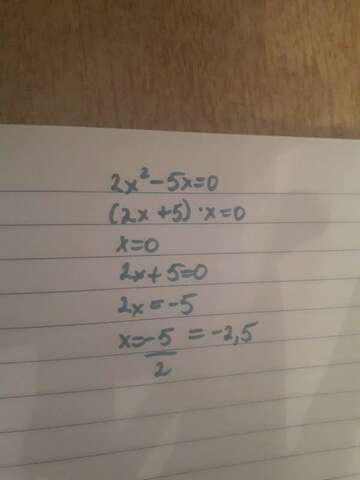 2x² - 5x = 0
(2x + 5) · x = 0
x = 0
2x + 5 = 0
2x = -5
x = -5/2 = -2,5